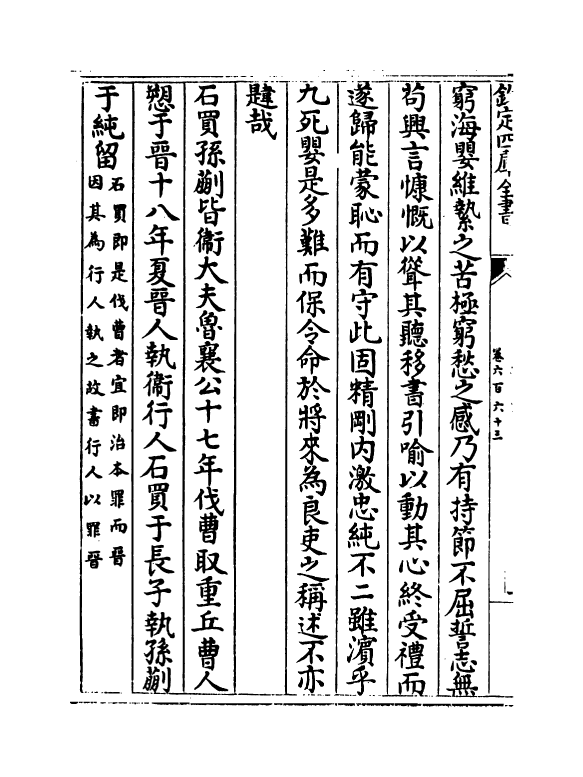 欽定四庫全書
卷六百六十三
窮海嬰維縶之苦極窮愁之感乃有持節不屈誓志無
茍興言慷慨以聳其聽移書引喻以動其心終受禮而
遂歸能蒙恥而有守此固精剛內激忠純不二雖濵乎
九死嬰是多難而保令命於將來為良吏之稱述不亦
韙哉
石買孫蒯皆衞大夫魯襄公十七年伐曹取重丘曹人
愬于晉十八年夏晉人執衞行人石買于長子執孫蒯
于純留石買即是伐曹者宜即治本罪而晉
因其為行人執之故書行人以罪晉